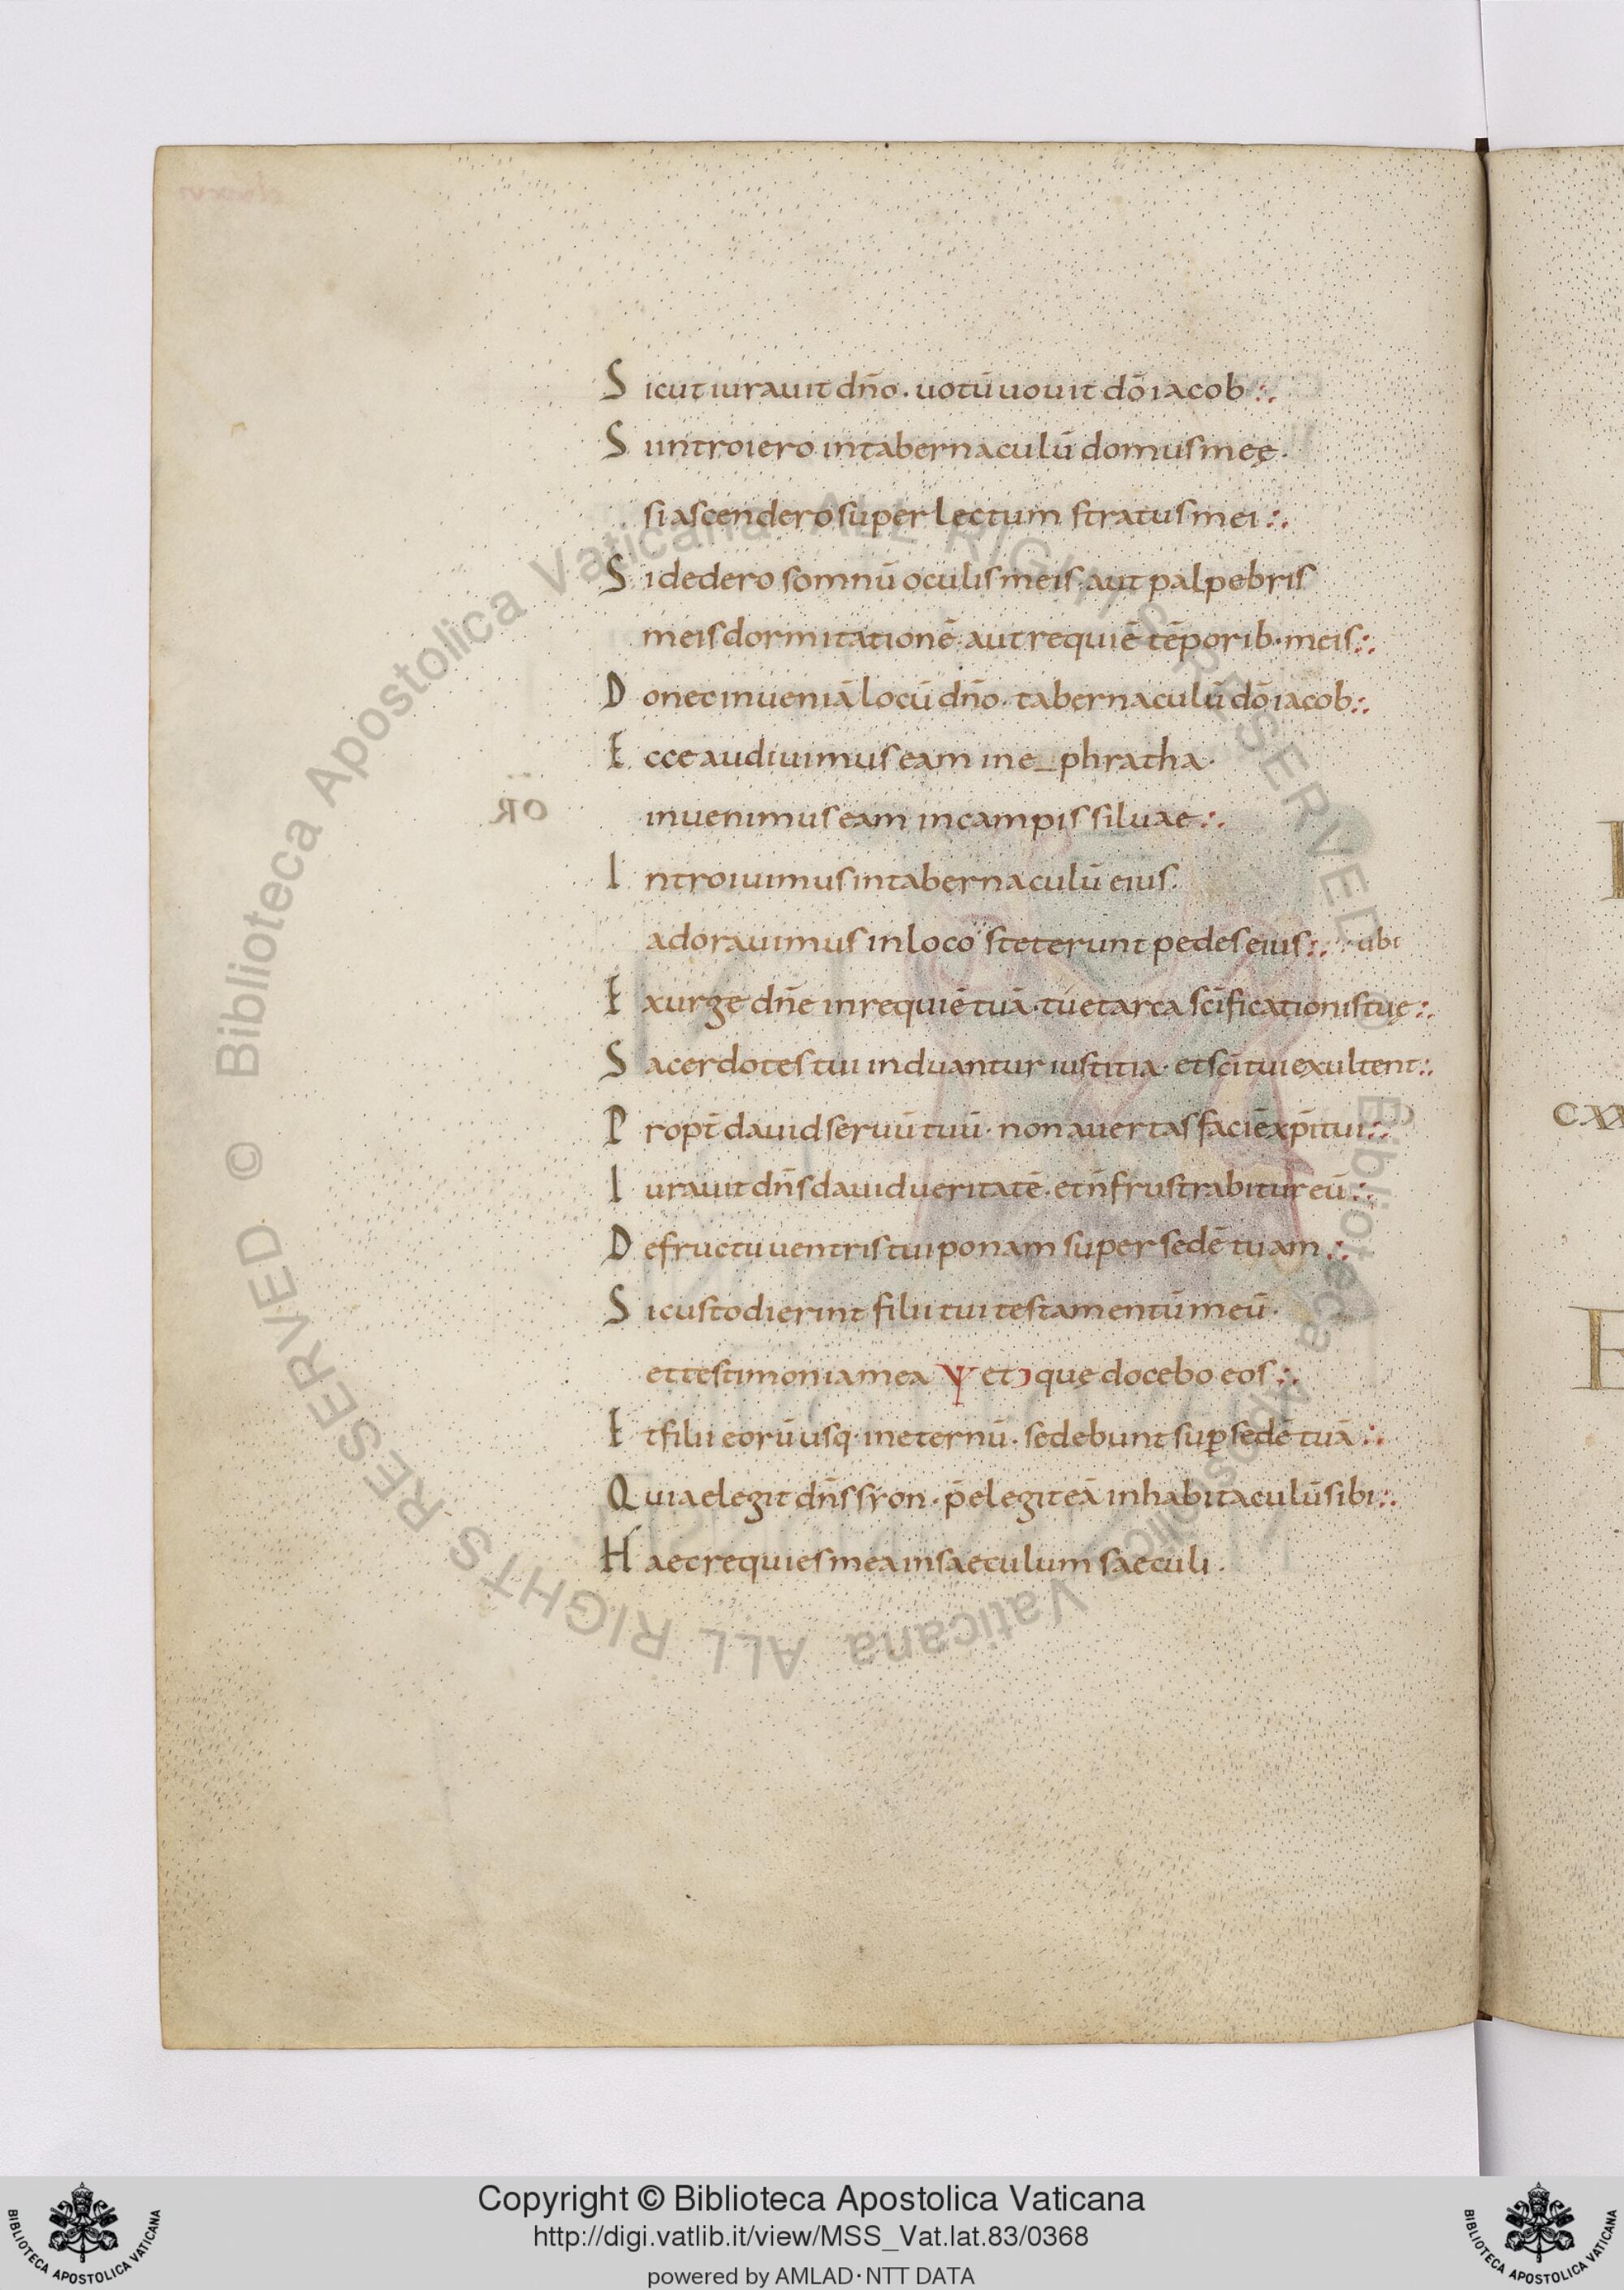 Sicut iurauit dn̄o · uotū uouit dō iacob :·
Si introiero in tabernaculū domus meę ·
si ascendero super lectum stratus mei :·
Si dedero somnū oculis meis · aut palpebris
meis dormitationē · aut requiē tēporib · meis :·
Donec inueniā locū dn̄o · tabernaculū dō iacob :·
Ecce audiuimus eam in e_phratha ·
inuenimus eam in campis siluae :·
Introiuimus in tabernaculū eius ·
adorauimus in loco steterunt pedes eius :· ubi
Exurge dn̄e in requiē tuā · tu et arca scīficationis tuę :·
Sacerdotes tui induantur iustitia · et scī tui exultent :·
Propt̄ dauid seruū tuū · non auertas faciē xp̄i tui :·
Iurauit dn̄s dauid ueritatē · et n̄ frustrabitur eū :·
De fructu uentris tui ponam super sedē tuam :·
Si custodierint filii tui testamentū meū ·
et testimonia mea Ѱ et ↄ quę docebo eos :·
Et filii eorū usq · in eternū · sedebunt suꝑ sedē tuā :·
Quia elegit dn̄s syon · p̄elegit eā in habitaculū sibi :·
Haec requies mea in saeculum saeculi ·
CXX
E
© Biblioteca Apostolica Vaticana ALL RIGHTS RESERVED © Biblioteca Apostolica Vaticana ALL RIGHTS RESERVED
Copyright © Biblioteca Apostolica Vaticana
http://digi.vatlib.it/view/MSS_Vat.lat.83/0368
powered by AMLAD · NTT DATA
BIBLIOTECA APOSTOLICA VATICANA
BIBLIOTECA APOSTOLICA VATICANA